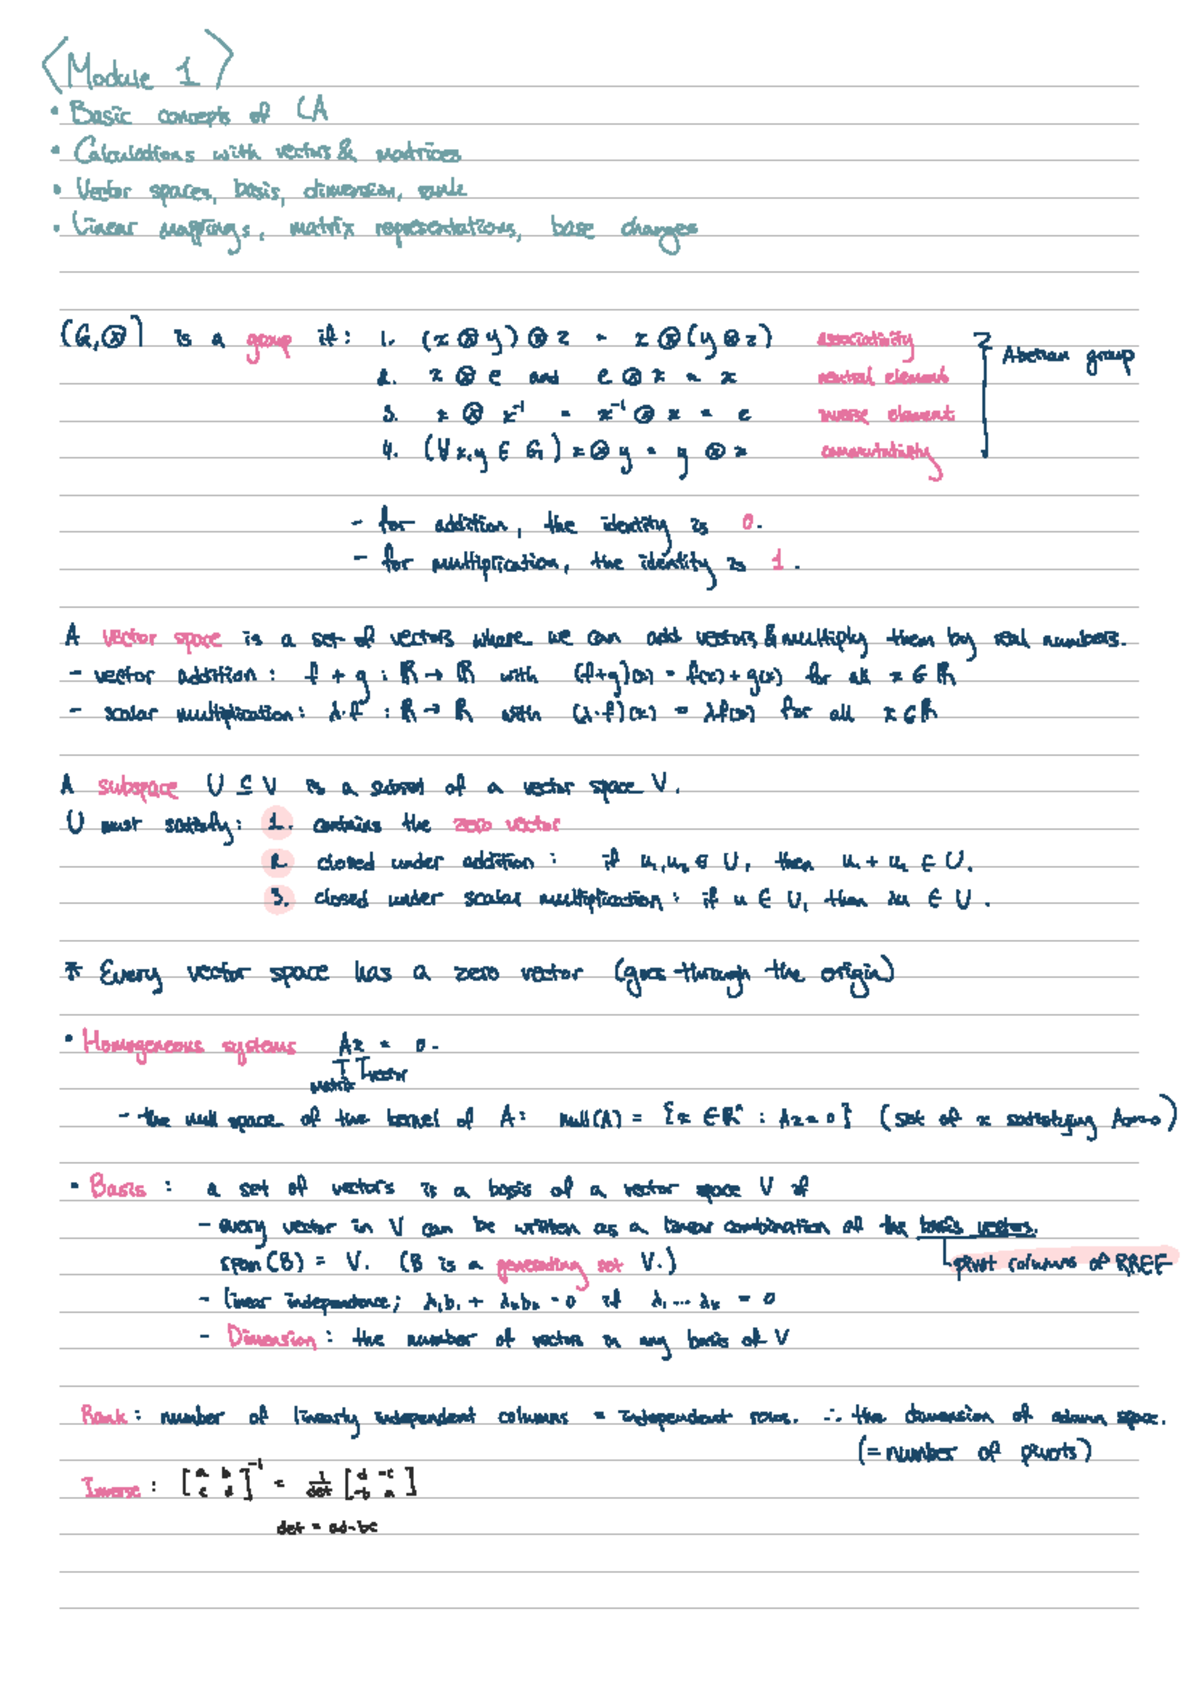 <Module 1>
• Basic concepts of LA
• Calculations with vectors & matrices
• Vector spaces, basis, dimension, rank
• Linear mappings, matrix representations, base changes
(G,⊗) is a group if: 1. (x ⊗ y) ⊗ z = x ⊗ (y ⊗ z) associativity
2. x ⊗ e and e ⊗ x = x neutral element
3. x ⊗ x⁻¹ = x⁻¹ ⊗ x = e inverse element
4. (∀x,y ∈ G) x ⊗ y = y ⊗ x commutativity
Abelian group
- for addition, the identity is 0.
- for multiplication, the identity is 1.
A vector space is a set of vectors where we can add vectors & multiply them by real numbers.
- vector addition: f + g : ℝ → ℝ with (f+g)(x) = f(x) + g(x) for all x ∈ ℝ
- scalar multiplication: λ·f : ℝ → ℝ with (λ·f)(x) = λf(x) for all x ∈ ℝ
A subspace U ⊆ V is a subset of a vector space V.
U must satisfy: 1. contains the zero vector
2. closed under addition: if u₁,u₂ ∈ U, then u₁ + u₂ ∈ U.
3. closed under scalar multiplication: if u ∈ U, then λu ∈ U.
* Every vector space has a zero vector (goes through the origin)
• Homogeneous systems Ax = 0.
matrix vector
- the null space of the kernel of A: null(A) = {x ∈ ℝⁿ : Ax = 0} (set of x satisfying Ax=0)
• Basis: a set of vectors is a basis of a vector space V if
- every vector in V can be written as a linear combination of the basis vectors.
span(B) = V. (B is a generating set V.)
pivot columns of RREF
- linear independence; λ₁b₁ + λₖbₖ = 0 if λ₁ ... λₖ = 0
- Dimension: the number of vectors in any basis of V
Rank: number of linearly independent columns = independent rows. ∴ the dimension of column space.
(= number of pivots)
Inverse: [a b c d]⁻¹ = 1/det [d -c -b a]
det = ad-bc